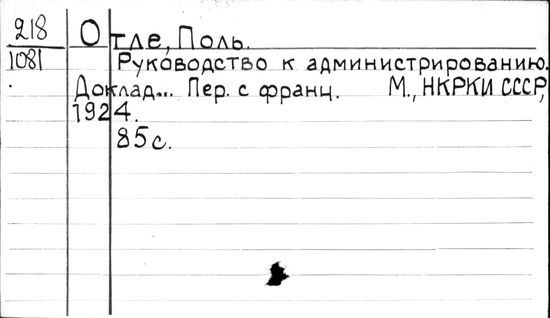 218
1081
Отле, Поль.
Руководство к администрированию.
Доклад... Пер. с франц. М., НКРКИ СССР,
1924.
85с.